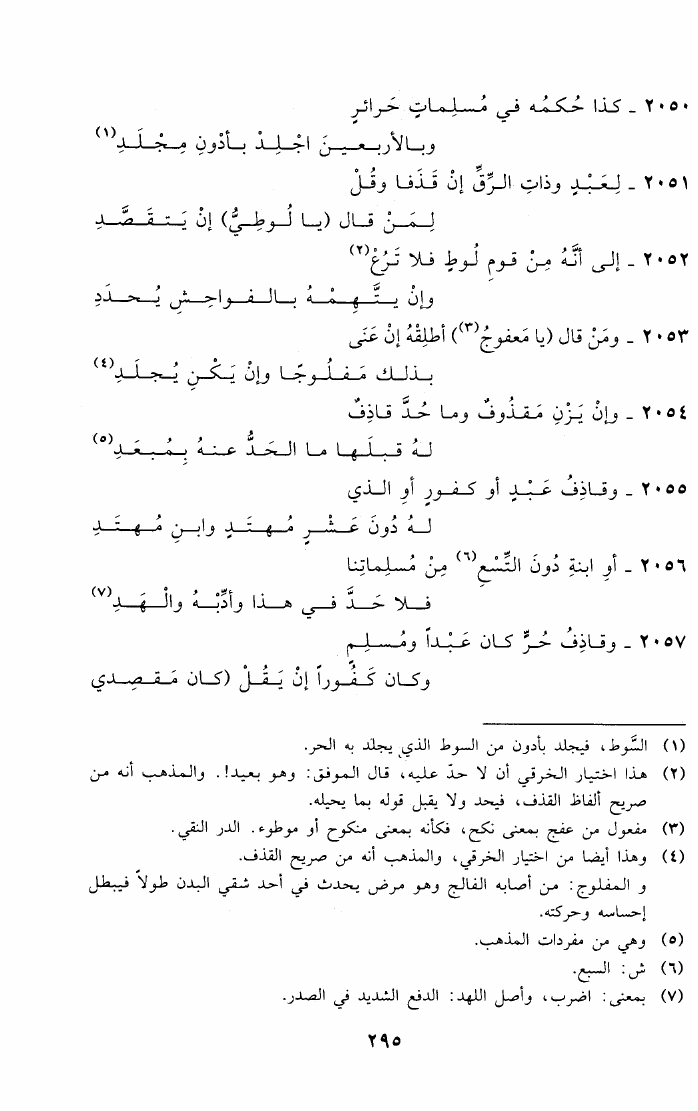 ٢٠٥٠ ـ كذا حُكمُه في مُسلِماتٍ حَرائرٍ
وبـالأربـعـيـنَ اجْـلِـدْ بـأدْونِ مِـجْـلَـدِ(١)
٢٠٥١ ـ لِعَبْدٍ وذاتِ الرِّقِّ إنْ قَذَفا وقُلْ
لِـمَـنْ قـال (يـا لُـوطِـيُّ) إنْ يَـتـقَـصَّـدِ
٢٠٥٢ ـ إلى أنَّهُ مِنْ قومِ لُوطٍ فلا تَرُعْ(٢)
وإنْ يـتَّـهِـمْـهُ بـالـفـواحِـشِ يُـحـدَدِ
٢٠٥٣ ـ ومَنْ قال (يا مَعفوجُ(٣)) أطلِقْهُ إنْ عَنَى
بـذلـك مَـفـلُـوجًـا وإنْ يَـكُـنِ يُـجـلَـدِ(٤)
٢٠٥٤ ـ وإنْ يَزْنِ مَقذُوفٌ وما حُدَّ قاذِفٌ
لهُ قبلَها ما الحَدُّ عنهُ بِمُبعَدِ(٥)
٢٠٥٥ ـ وقاذِفُ عَبْدٍ أو كفورٍ أوِ الذي
لـهُ دُونَ عَـشْـرٍ مُـهـتَـدٍ وابـنِ مُـهـتَـدِ
٢٠٥٦ ـ أوِ ابنةِ دُونَ التِّسْعِ(٦) مِنْ مُسلِماتِنا
فـلا حَـدَّ فـي هـذا وأدِّبْـهُ والْـهَـدِ(٧)
٢٠٥٧ ـ وقاذِفُ حُرٍّ كان عَبْداً ومُسلِمٍ
وكان كَفُوراً إنْ يَقُلْ (كان مَقصِدي
(١) السَّوط، فيجلد بأدون من السوط الذي يجلد به الحر.
(٢) هذا اختيار الخرقي أن لا حدّ عليه، قال الموفق: وهو بعيد!. والمذهب أنه من
صريح ألفاظ القذف، فيحد ولا يقبل قوله بما يحيله.
(٣) مفعول من عفج بمعنى نكح، فكأنه بمعنى منكوح أو موطوء. الدر النقي.
(٤) وهذا أيضا من اختيار الخرقي، والمذهب أنه من صريح القذف.
و المفلوج: من أصابه الفالج وهو مرض يحدث في أحد شقي البدن طولاً فيبطل
إحساسه وحركته.
(٥) وهي من مفردات المذهب.
(٦) ش: السبع.
(٧) بمعنى: اضرب، وأصل اللهد: الدفع الشديد في الصدر.
٢٩٥